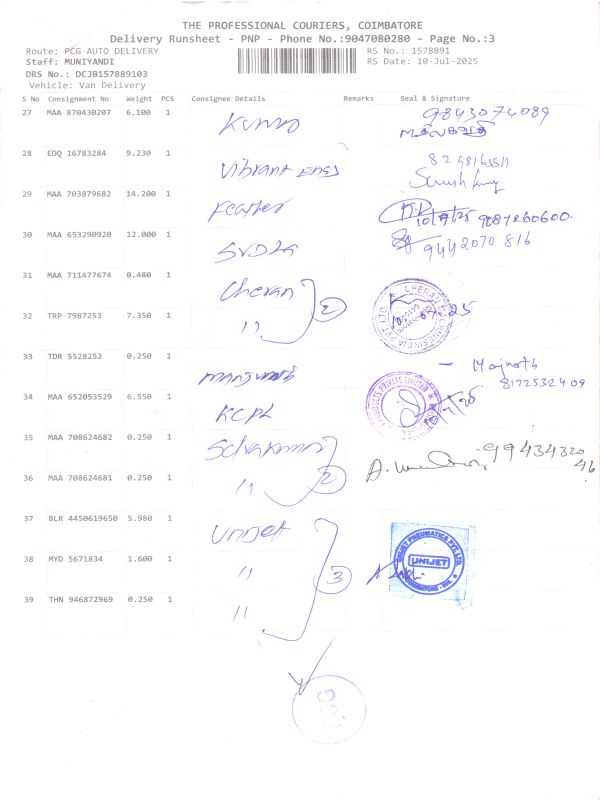 THE PROFESSIONAL COURIERS, COIMBATORE
Delivery Runsheet - PNP - Phone No.:9047080280 - Page No.:3
Route: PCG AUTO DELIVERY RS No.: 1578891
Staff: MUNIYANDI RS Date: 10-Jul-2025
DRS No.: DCJB157889103
Vehicle: Van Delivery
S No Consignment No Weight PCS Consignee Details Remarks Seal & Signature
27 MAA 870430207 6.100 1 Kumar 9843074089
28 EDQ 16783284 9.230 1 Vibrant Engg
29 MAA 703879682 14.200 1 Feather 10/7/25 9087260600
30 MAA 653290920 12.000 1 9442070816
31 MAA 711477674 0.480 1 Cheran 2
32 TRP 7987253 7.350 1 "
33 TDR 5528252 0.250 1 Manjunath - Majnoth 8122532409
34 MAA 652053529 6.550 1 KCPL
35 MAA 708624682 0.250 1 Selvakumar 2 9943432046
36 MAA 708624681 0.250 1 "
37 BLR 4450619650 5.980 1 Unijet 3 UNIJET PNEUMATICS PVT.LTD. UNIJET COIMBATORE
38 MYD 5671834 1.600 1 "
39 THN 946872969 0.250 1 "